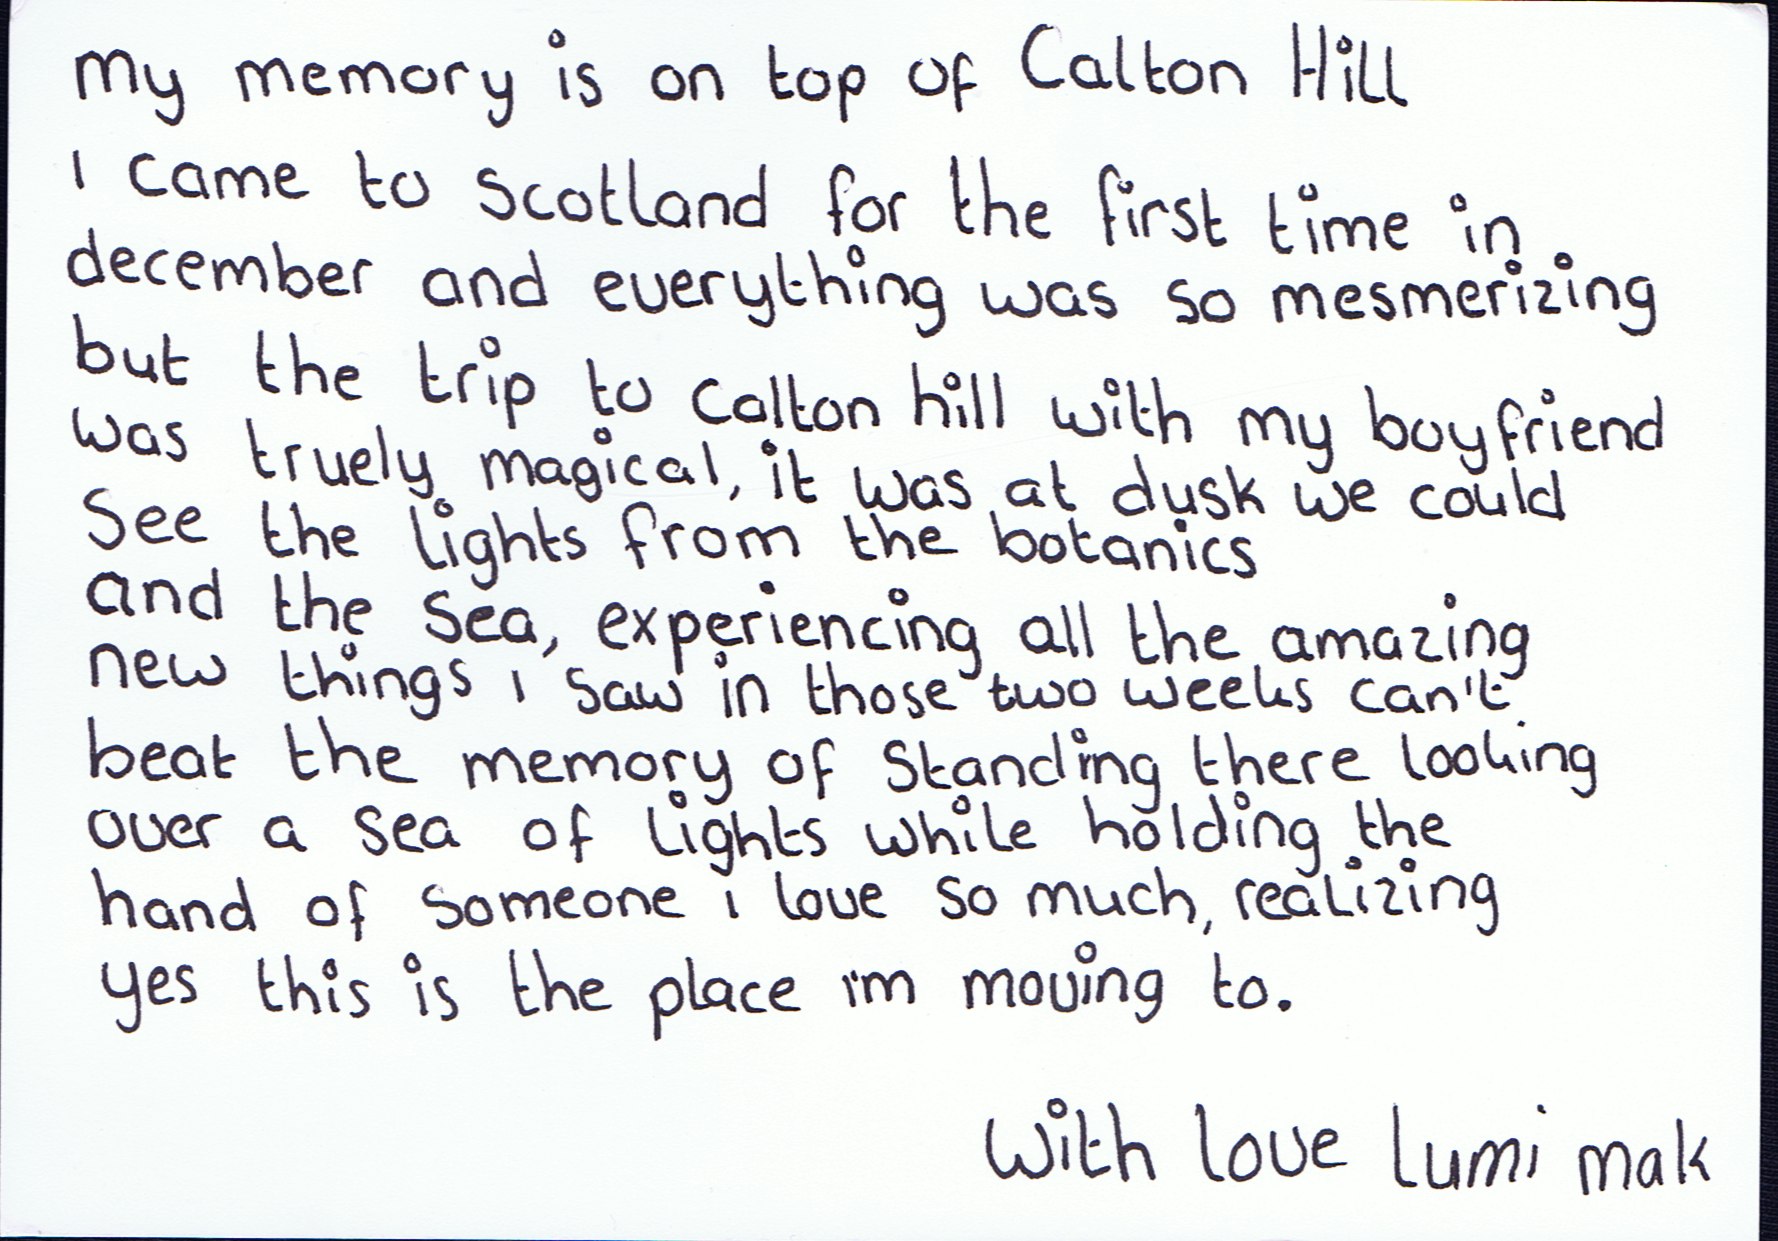 My memory is on top of Calton Hill
I came to Scotland for the first time in
december and everything was so mesmerizing
but the trip to calton hill with my boyfriend
was truely magical, it was at dusk we could
See the lights from the botanics
and the sea, experiencing all the amazing
new things I saw in those two weeks can't
beat the memory of standing there looking
over a sea of lights while holding the
hand of someone i love so much, realizing
yes this is the place i'm moving to.
With love Lumi mak